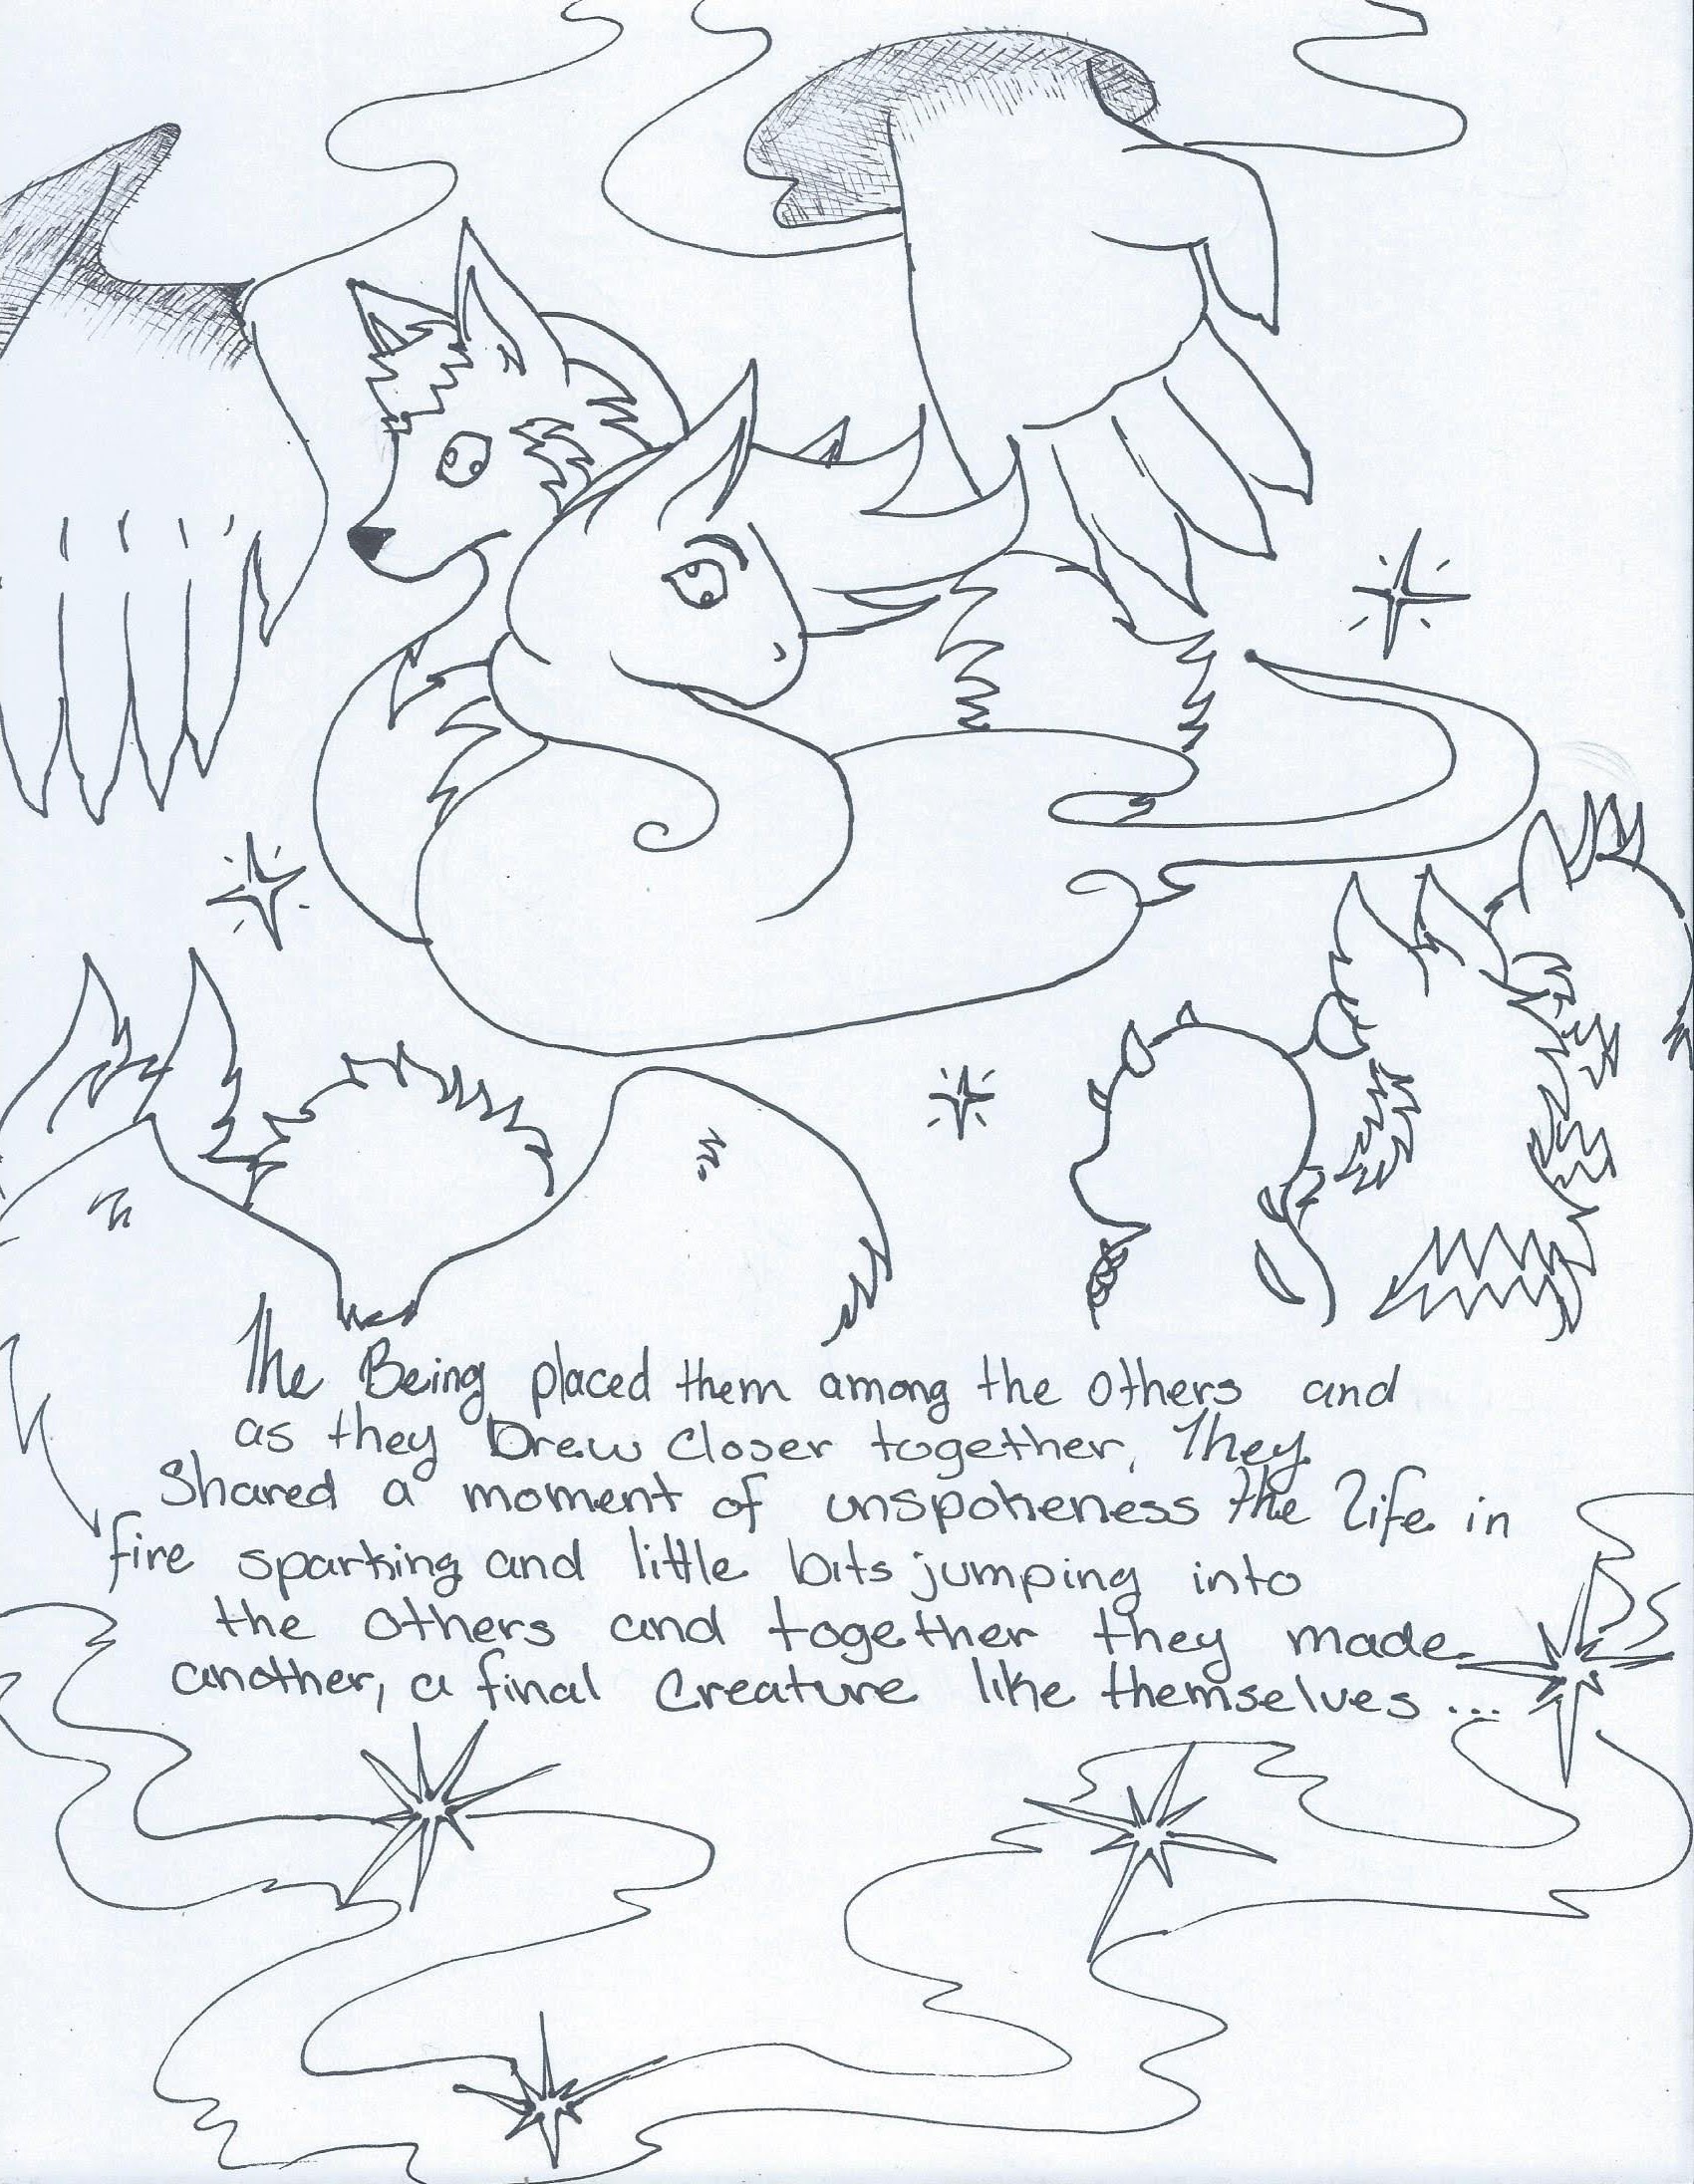 The Being placed them among the others and
as they Drew closer together, They
Shared a moment of unspokeness the life in
fire sparking and little bits jumping into
the others and together they made
another, a final creature like themselves...